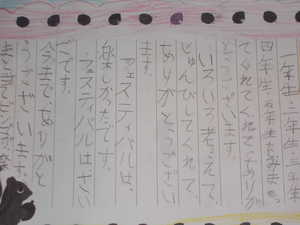 一年生、二年生、三年生、
四年生、五年生、六年生も、
てくれてくれてありが
とうございます。
いろいろ考えて、
じゅんびしてくれて、
ありがとうござい
ます。
フェスティバルは、
楽しかったです。
フェスティバルはさい
ごです。
今まで、ありがと
うございます。